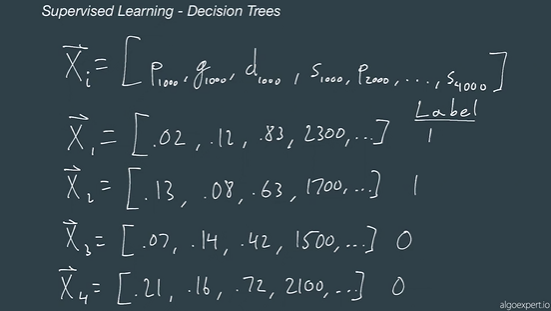 Supervised Learning - Decision Trees
X⃗ᵢ = [p₁₀₀₀, g₁₀₀₀, d₁₀₀₀, s₁₀₀₀, p₂₀₀₀, ..., s₄₀₀₀]
Label
X⃗₁ = [.02, .12, .83, 2300, ...] 1
X⃗₂ = [.13, .08, .63, 1700, ...] 1
X⃗₃ = [.07, .14, .42, 1500, ...] 0
X⃗₄ = [.21, .16, .72, 2100, ...] 0
algoexpert.io